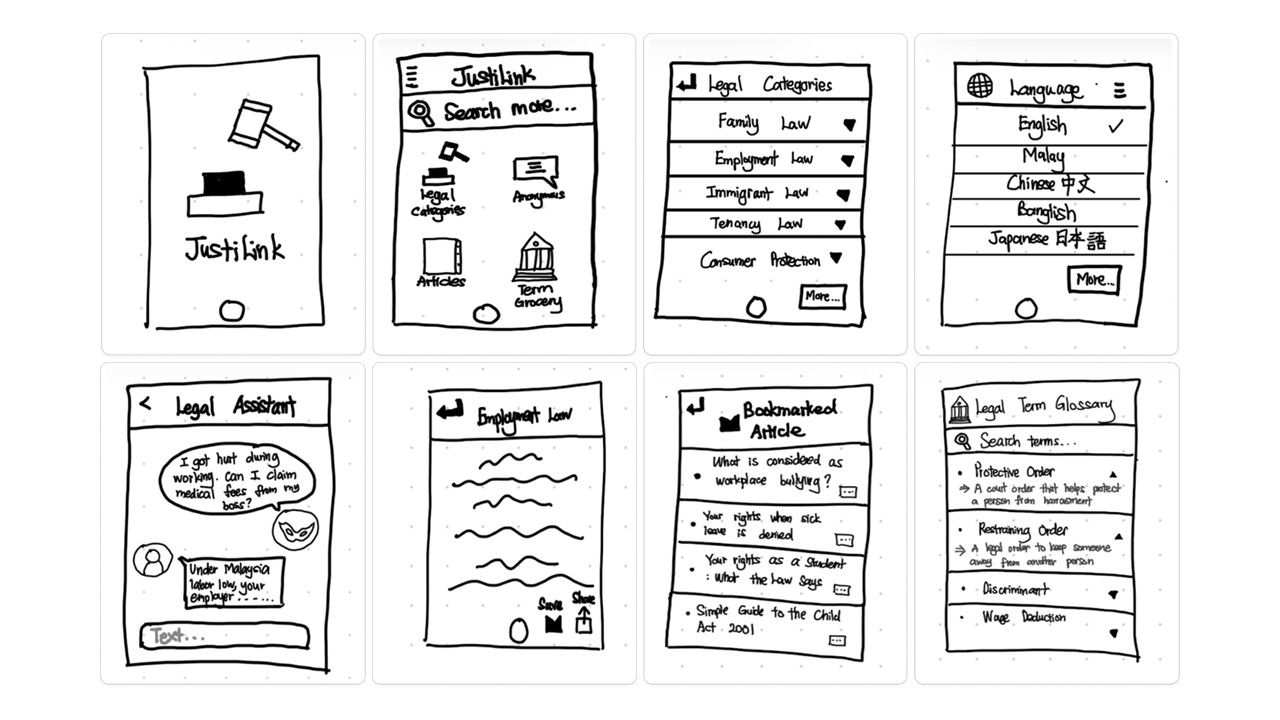 JustiLink
JustiLink
Search more...
Legal
Categories
Anonymous
Articles
Term
Grocery
Legal Categories
Family Law
Employment Law
Immigrant Law
Tenancy Law
Consumer Protection
More...
Language
English
Malay
Chinese 中文
Banglish
Japanese 日本語
More...
Legal Assistant
I got hurt during
working. Can I claim
medical fees from my
boss?
Under Malaysia
labor low, your
employer......
Text...
Employment Law
Save
Share
Bookmarked
Article
What is considered as
workplace bullying?
Your rights when sick
leave is denied
Your rights as a Student
: What the Law Says
Simple Guide to the Child
Act 2001
Legal Term Glossary
Search terms...
Protective Order
⇒ A court order that helps protect
a person from harassment
Restraining Order
⇒ A legal order to keep someone
away from another person
Discriminant
Wage Deduction